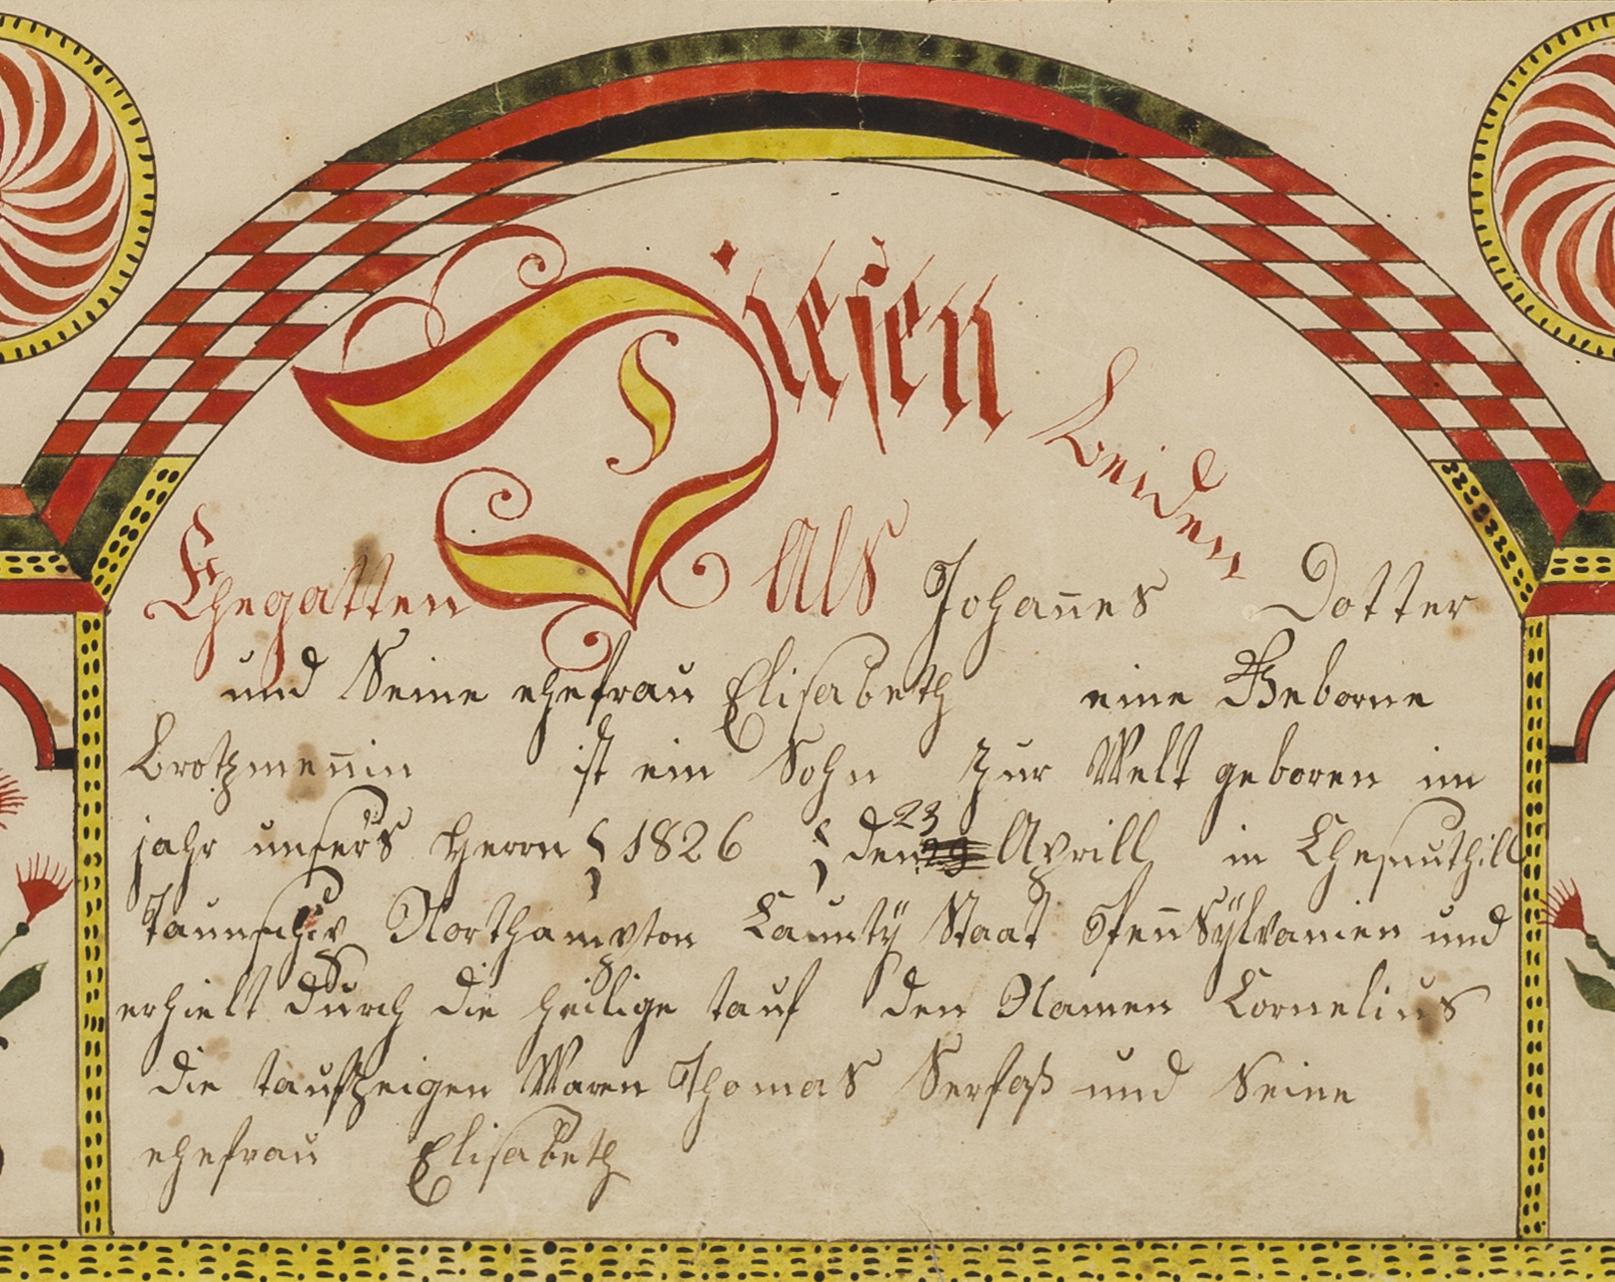 Diesen beiden
Ehegatten Als Johannes Dotter
und Seine ehefrau Elisabeth eine Geborne
Brotzmennin ist ein Sohn zur Welt geboren im
jahr unsers Herrn 1826 den 23 Aprill in Chesnuthill
Taunschip Northampton Caunty Staat Pennsÿlvanien und
erhielt durch die heilige tauf den Namen Cornelius
die taufzeigen Waren Thomas Serfaß und Seine
ehefrau Elisabeth